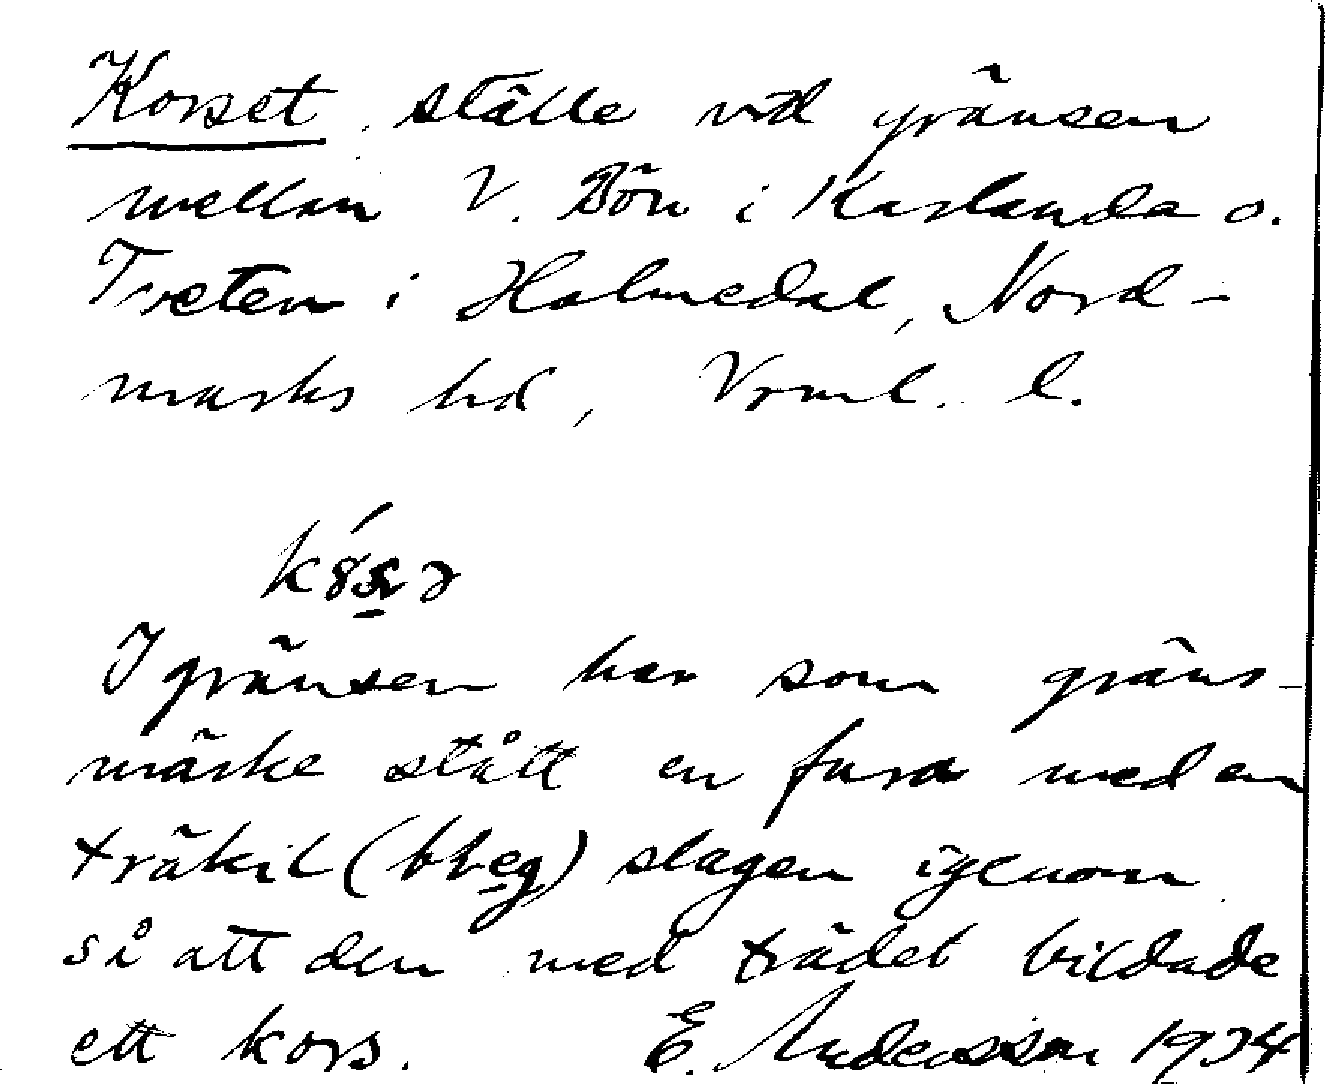 Korset, ställe vid gränsen
mellan V. Bön i Karlanda o.
Tveten i Holmedal, Nord-
marks hd, Vrml. l.
I gränsen har som gräns-
märke stått en fura med en
träkil () slagen igenom
så att den med trädet bildade
ett kors. E. Andersson 1934